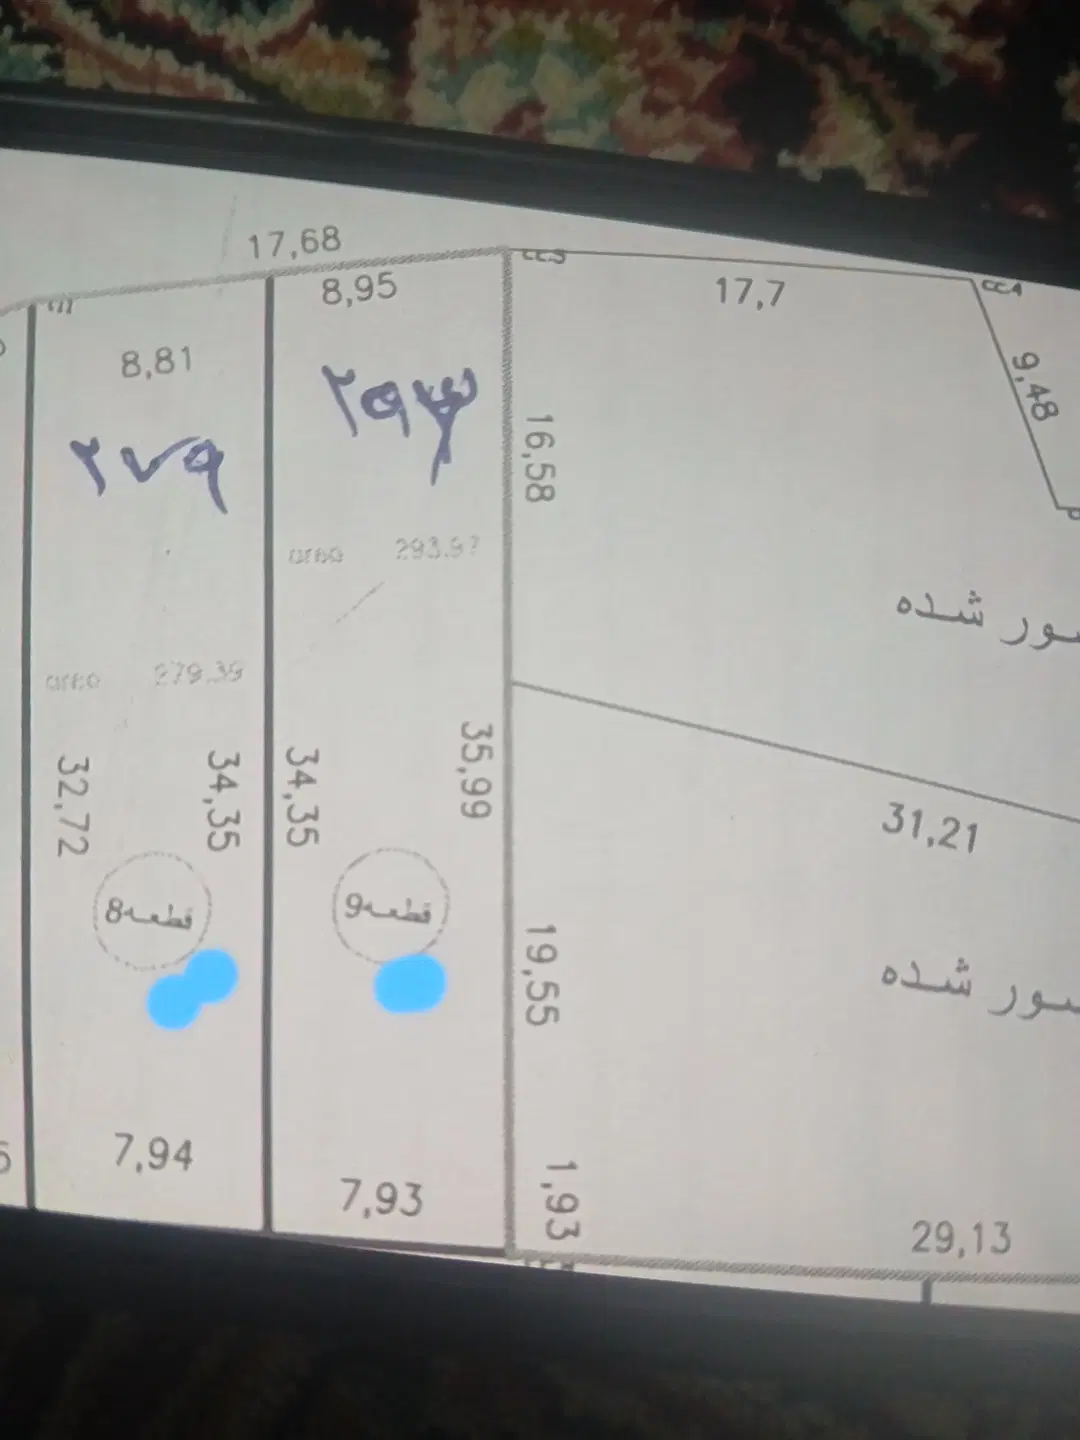 17,68
8,95
17,7
9,48
8,81
۲۹۳
۲۷۹
16,58
area 293.97
area 279.39
شده
35,99
32,72
34,35
34,35
31,21
قطعه8
قطعه9
19,55
شده
7,94
7,93
1,93
29,13